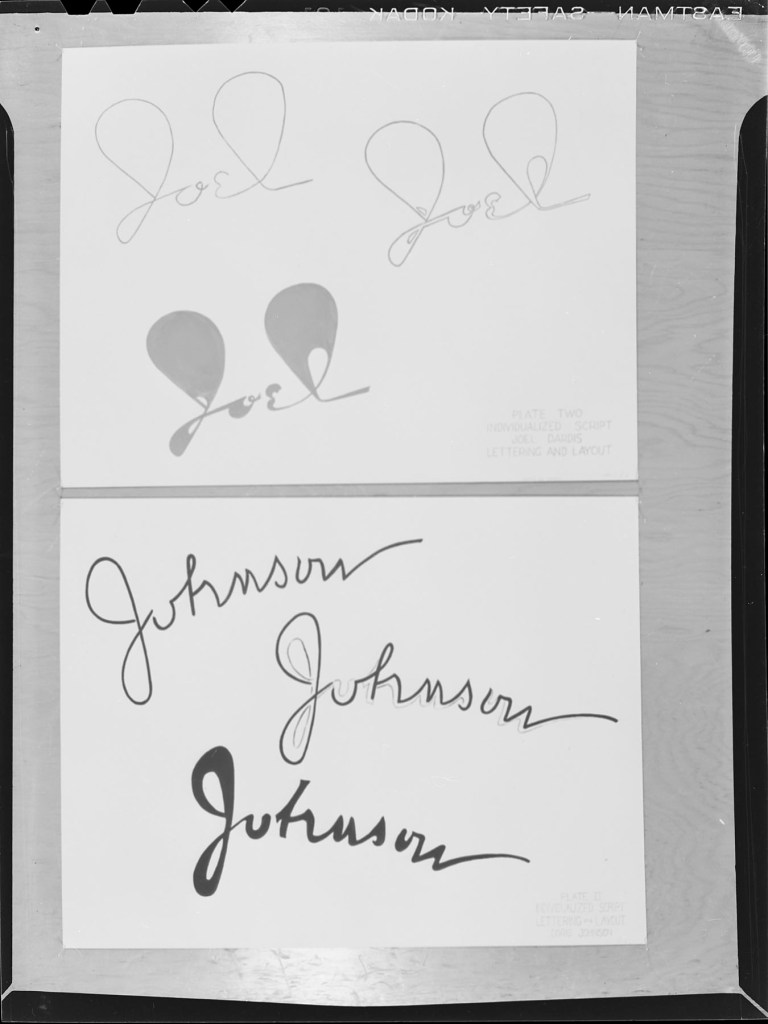 EASTMAN SAFETY KODAK
Joel
Joel
Joel
PLATE TWO
INDIVIDUALIZED SCRIPT
JOEL DARDIS
LETTERING AND LAYOUT
Johnson
Johnson
Johnson
PLATE
INDIVIDUALIZED SCRIPT
LETTERING AND LAYOUT
JOHNSON